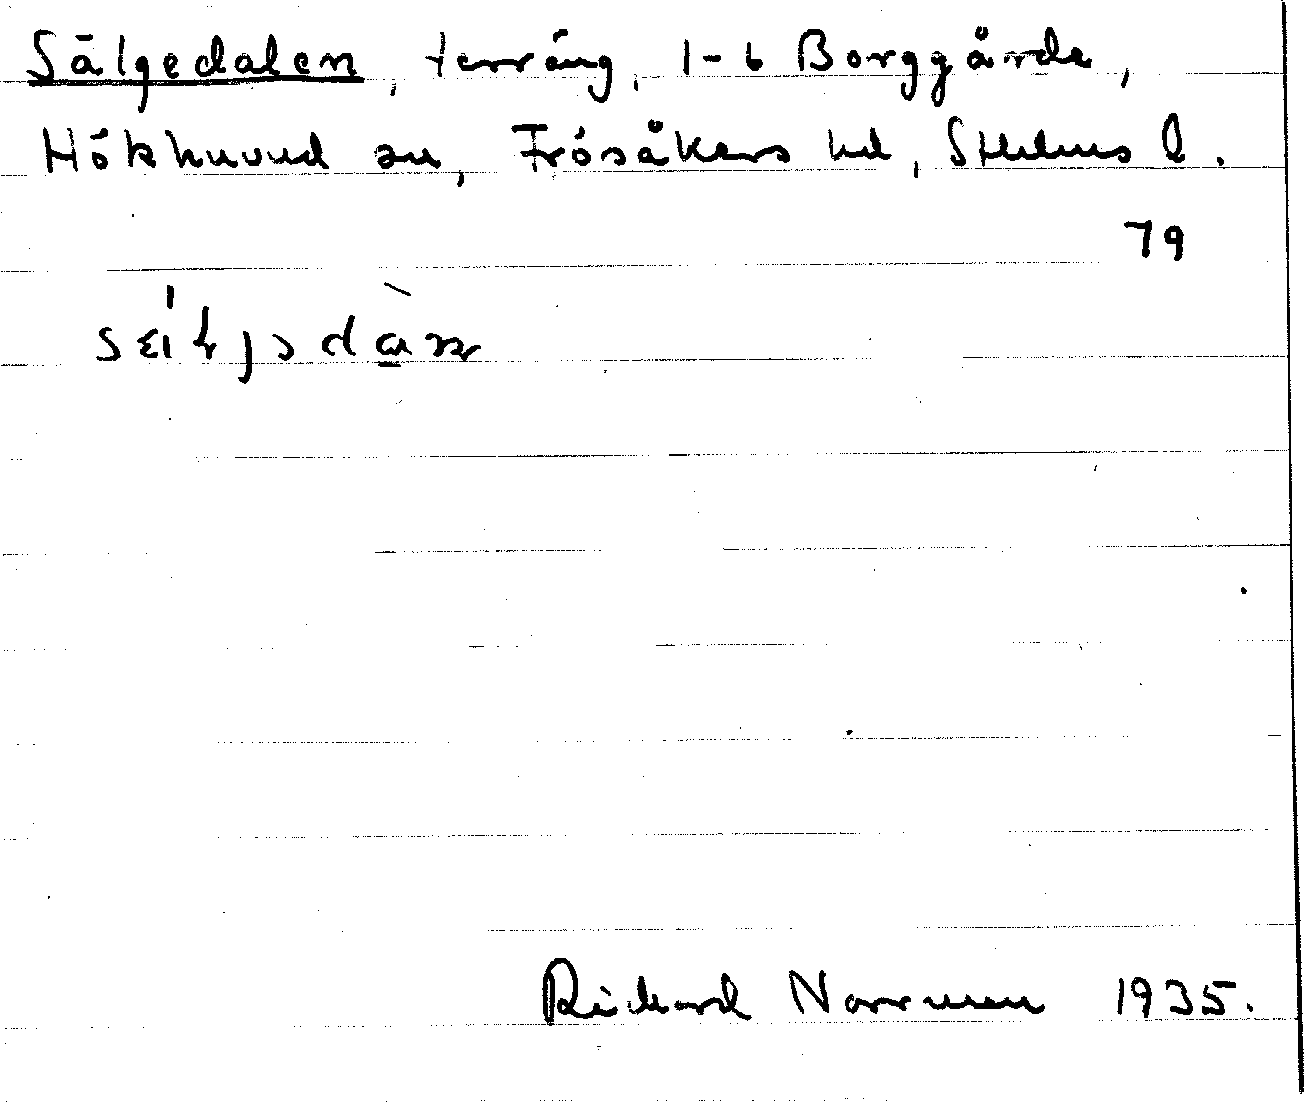 Sälgedalen, terräng, 1-6 Borggärde,
Hökhuvud sn, Frösåkers hd, Sthlms l.
79
Richard Norrman 1935.